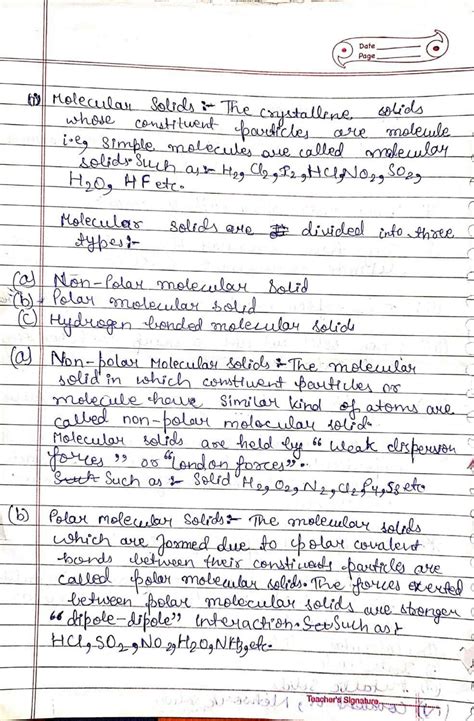 Date
Page
(i) Molecular Solids :- The crystalline solids
whose constituent particles are molecule
i.e, Simple molecules are called molecular
solids. Such as :- H2, Cl2, I2, HCl, NO2, SO2,
H2O, HF etc.
Molecular solids are divided into three
types :-
(a) Non-Polar molecular Solid
(b) Polar molecular solid
(c) Hydrogen bonded molecular solids
(a) Non-polar Molecular Solids :- The molecular
solid in which constituent particles or
molecule have similar kind of atoms are
called non-polar molecular solid.
Molecular solids are held by "weak dispersion
forces" or "London forces".
Such as :- Solid H2, O2, N2, Cl2, P4, S8 etc
(b) Polar Molecular Solids :- The molecular solids
which are formed due to polar covalent
bonds between their constituents particles are
called polar molecular solids. The forces exerted
between polar molecular solids are stronger
"dipole-dipole" interaction. Such as :-
HCl, SO2, NO2, H2O, NH3, etc.
Teacher's Signature